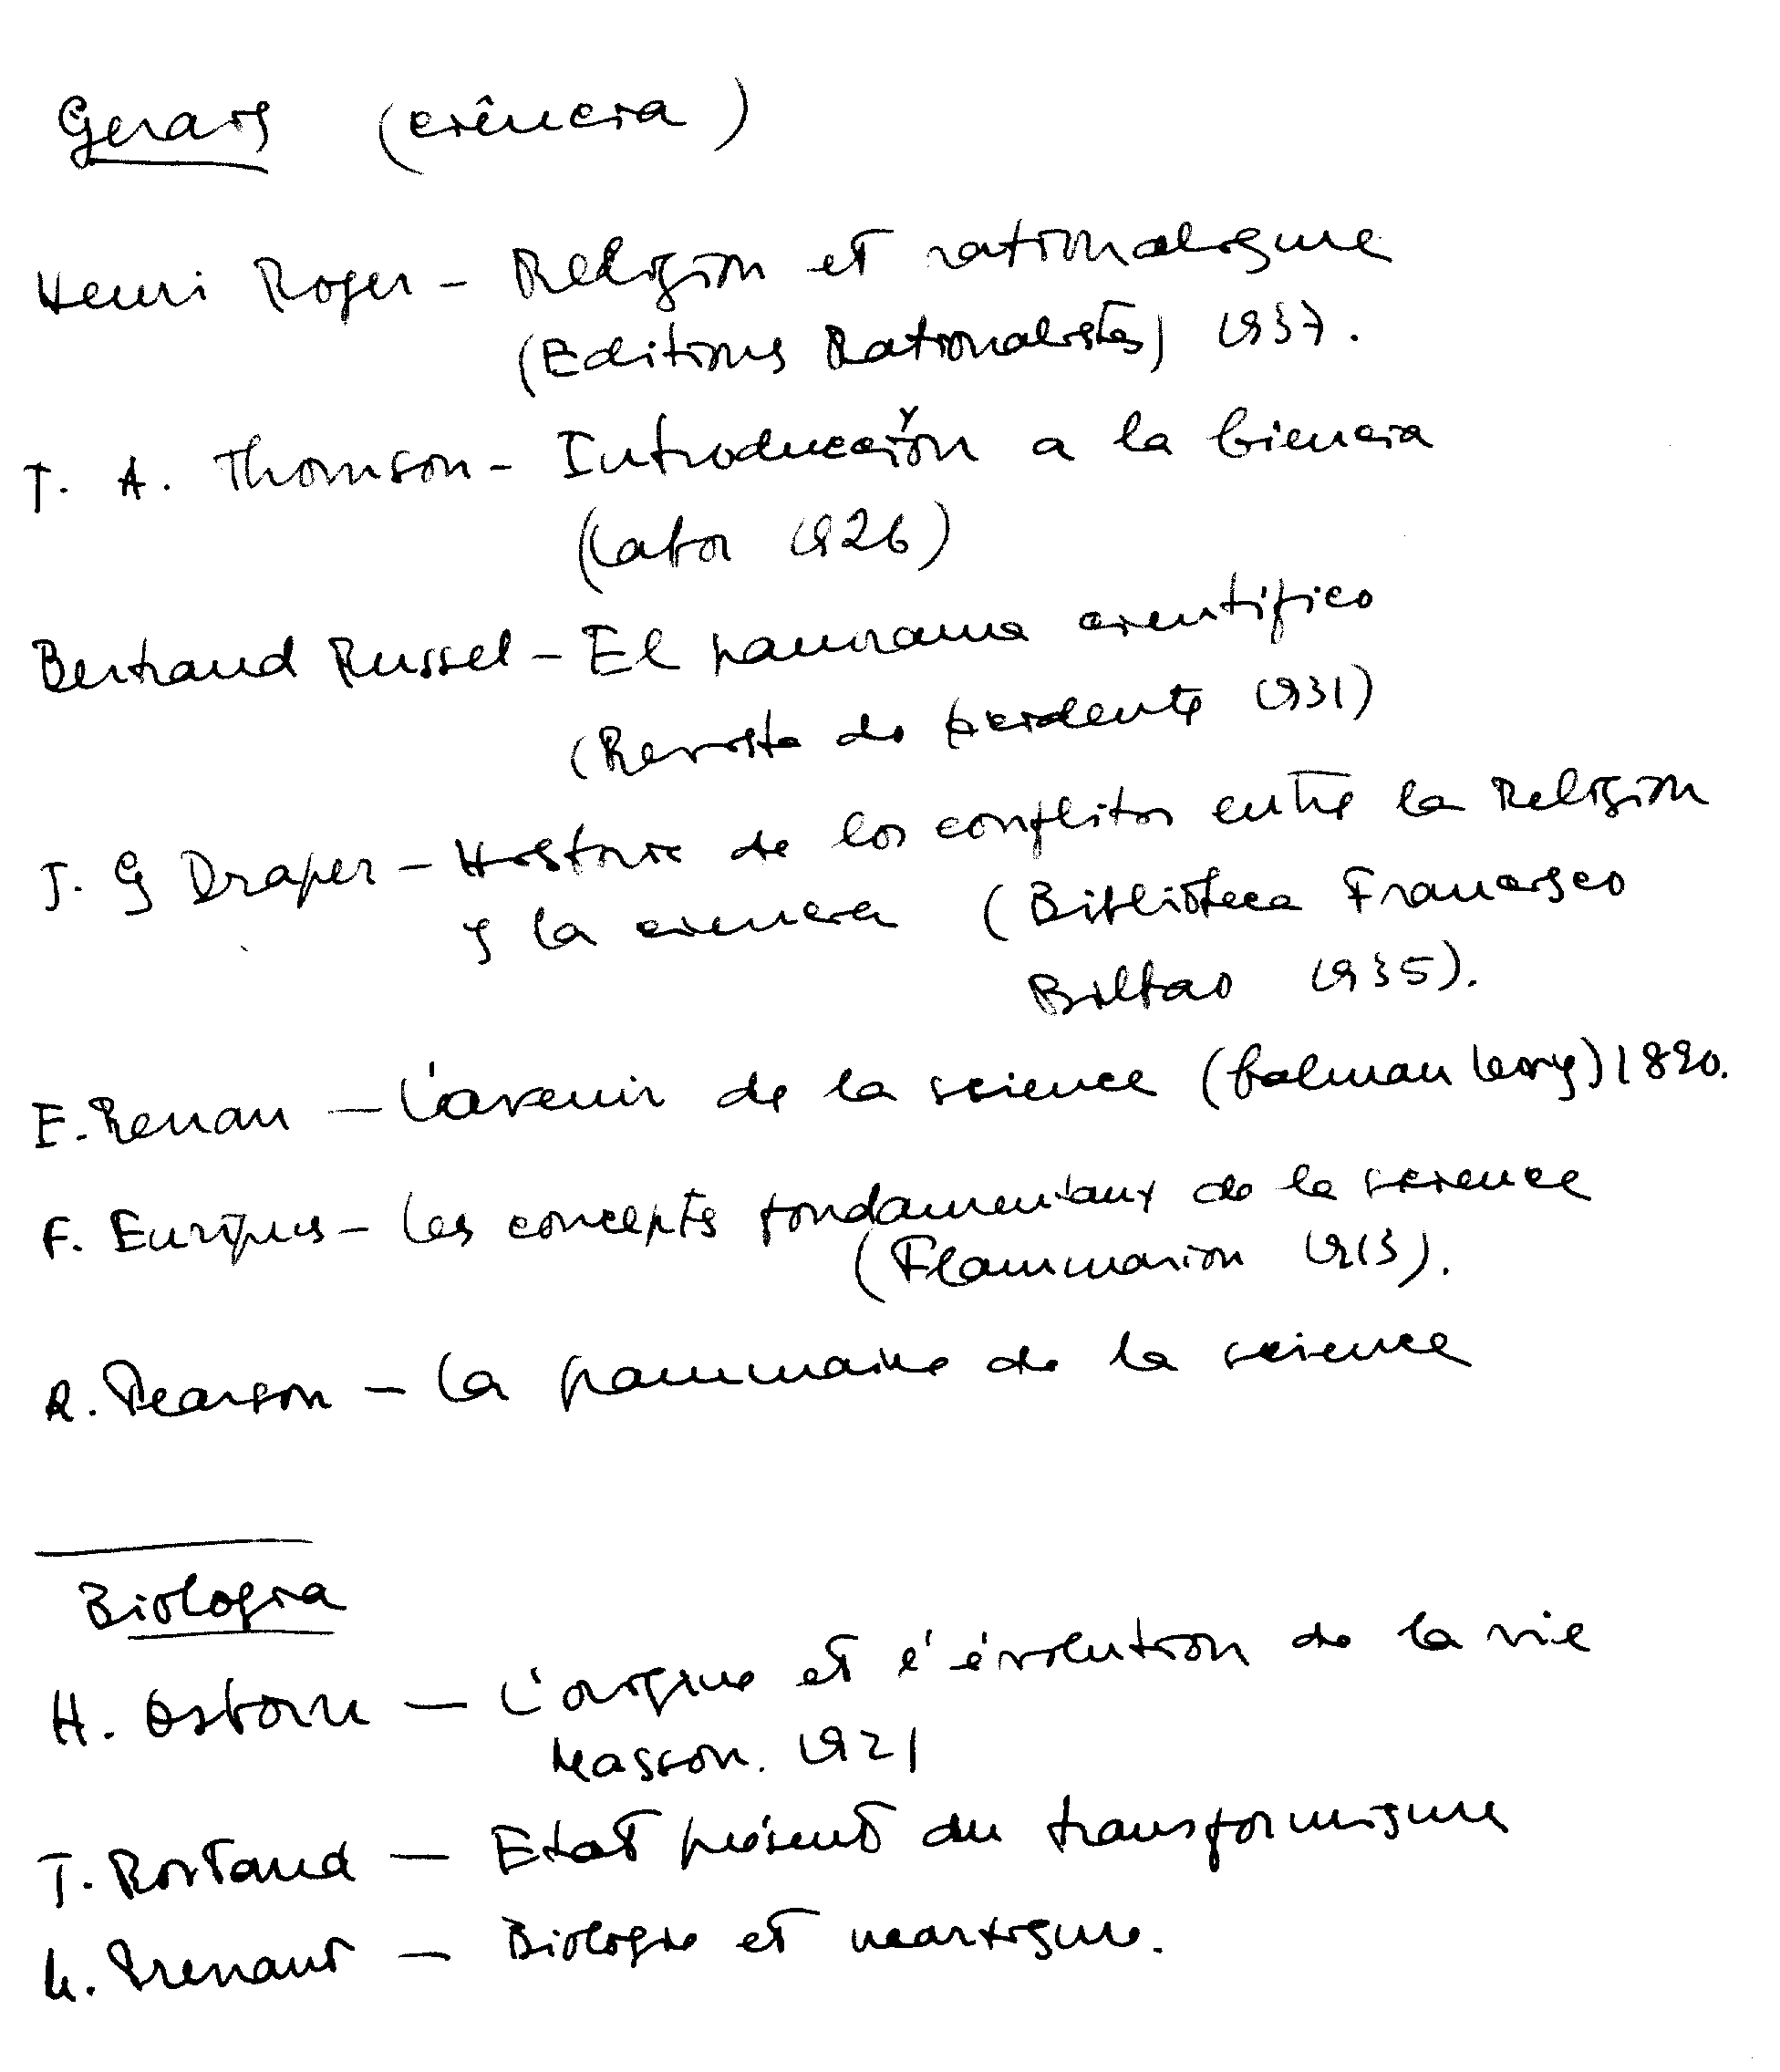 Gerais (ciência)
Henri Roger - Religion et rationalisme
(Editions Rationalistes) 1937.
T. A. Thomson - Introducción a la Ciencia
(Labor 1926)
Bertrand Russel - El panorama cientifico
(Revista do Occidente 1931)
J. G Draper - Historia de los conflitos entre la Religion
y la ciencia (Biblioteca Francisco
Bilbao 1935).
E. Renan - L'avenir de la science (Calman Levy) 1890.
F. Enriques - Les concepts fondamentaux de la science
(Flammarion 1913).
R. Pearson - La grammaire de la science
Biologia
H. Osborn - L'origine et l'évolution de la vie
Masson. 1921
J. Rostand - Etat présent du transformisme
M. Prenant - Biologie et marxisme.